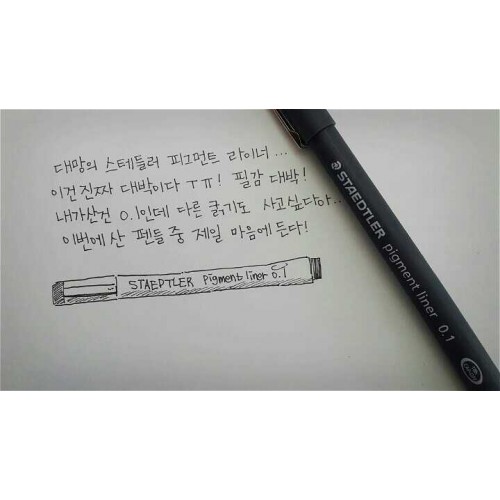 대망의 스테들러 피그먼트 라이너...
이건 진짜 대박이다 ㅠㅠ! 필감 대박!
내가산건 0.1인데 다른 굵기도 사고싶다아..
이번에 산 펜들 중 제일 마음에 든다!
STAEDTLER pigment liner 0.1
STAEDTLER pigment liner 0.1